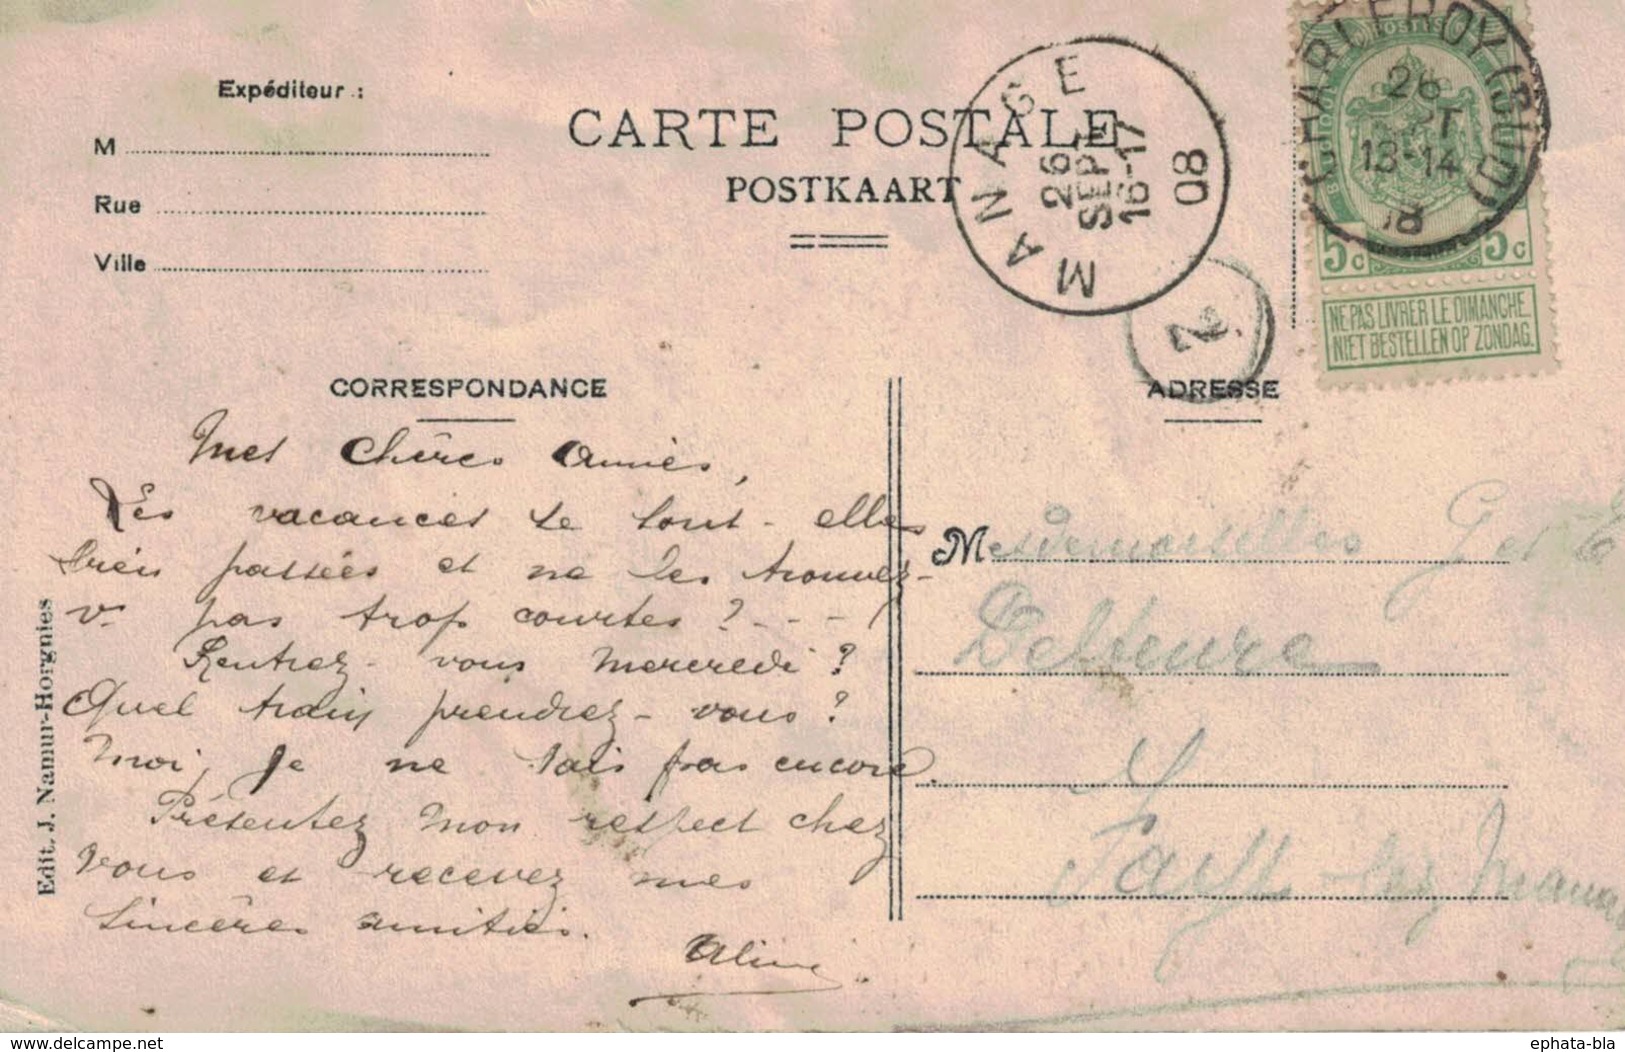 Expéditeur :
M
Rue
Ville
CARTE POSTALE
POSTKAART
MANAGE
26
SEPT
16-17
08
CHARLEROY (SUD)
26
SEPT
13-14
08
5c 5c
NE PAS LIVRER LE DIMANCHE.
NIET BESTELLEN OP ZONDAG.
2
CORRESPONDANCE
Mes Chères Amies,
Les vacances se sont-elles
bien passées et ne les trouvez-
v. pas trop courtes ? - - - -
Rentrez-vous mercredi ?
Quel train prendrez-vous ?
Moi, je ne sais pas encore.
Présentez mon respect chez
vous et recevez mes
sincères amitiés.
Aline.
ADRESSE
Mesdemoiselles G et
Delteure
Fayt-lez-Manage
Edit. J. Namur-Horgnies
www.delcampe.net
ephata-bla